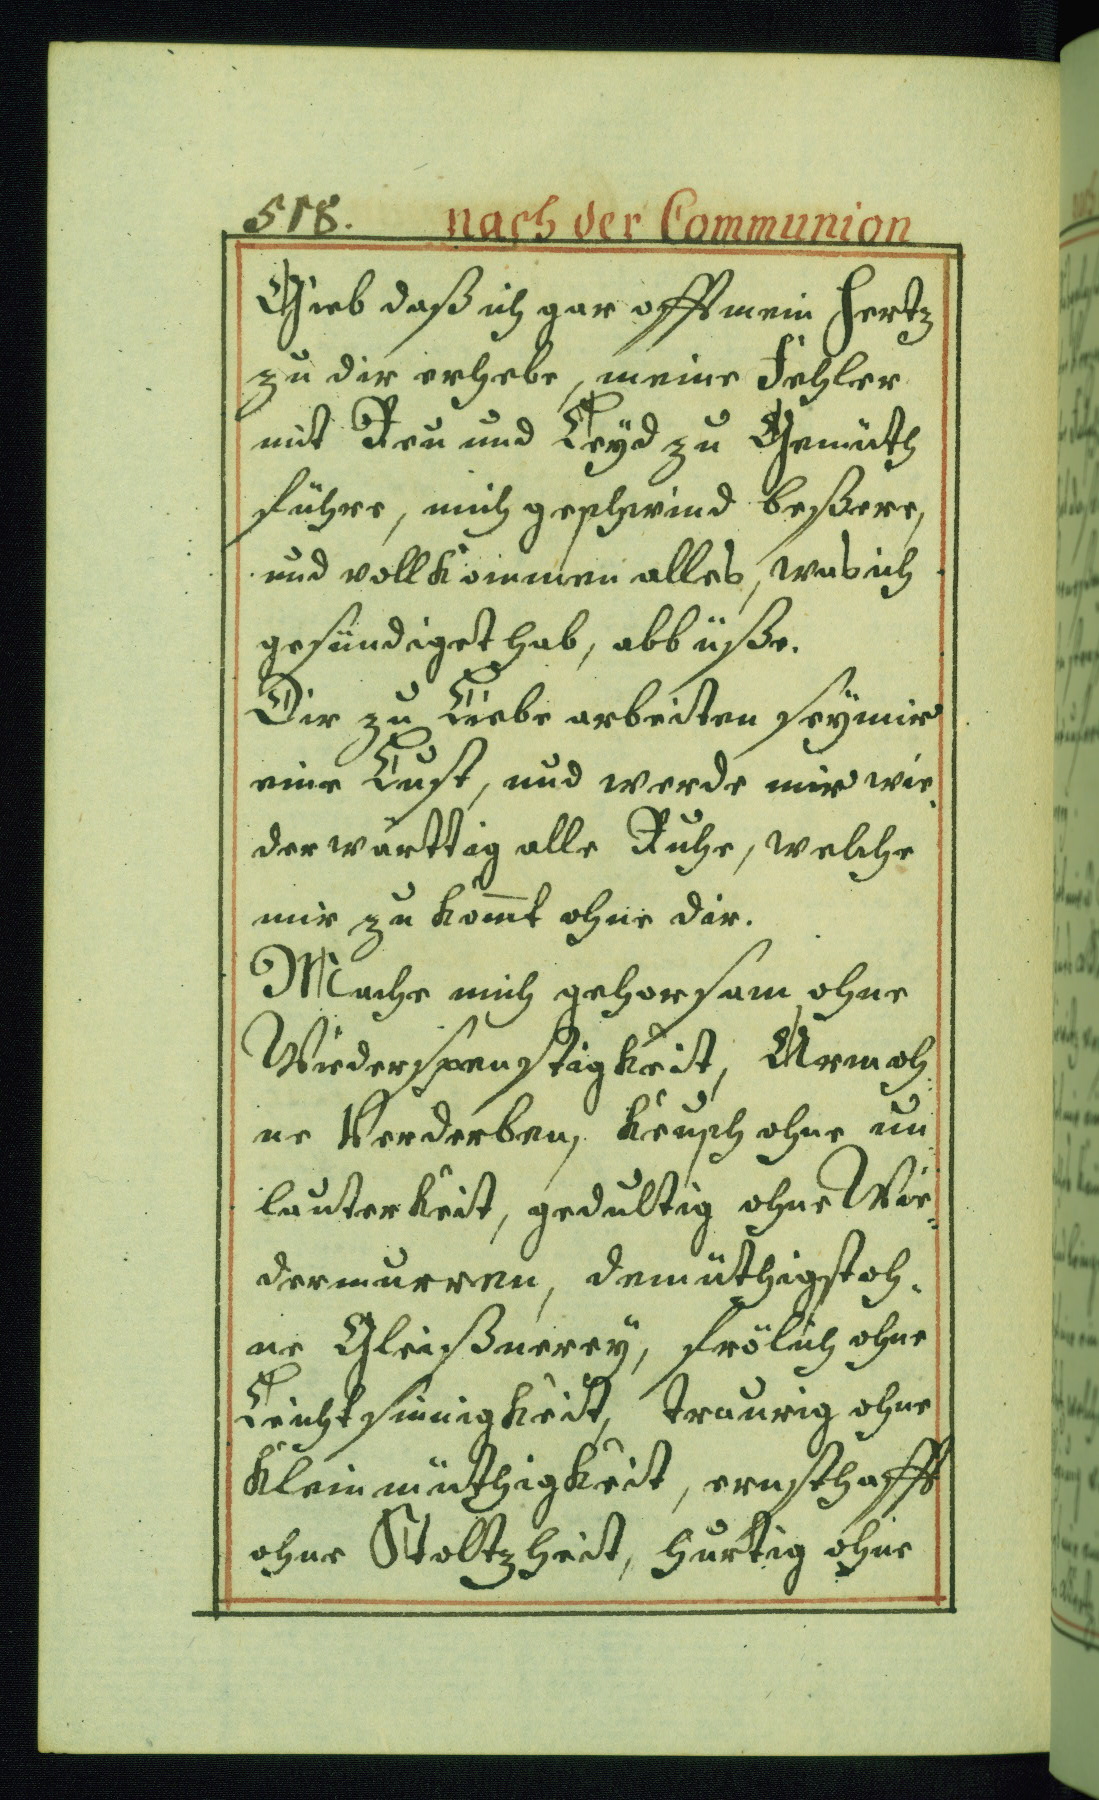 518. nach der Communion
Gieb daß ich gar offt mein Hertz
zu dir erhebe, meine Fehler
mit Reu und Leyd zu Gemüth
führe, mich geschwind beßere,
und vollkommen alles, was ich
gesündiget hab, abbüße.
Dir zu Liebe arbeiten seÿ mir
eine Lust, und werde mir wie¬
derwärttig alle Ruhe, welche
mir zu kom̄t ohne dir.
Mache mich gehorsam ohne
Wiederspenstigkeit, Arm oh
ne Verderben, keusch ohne un
lauterkeit, gedultig ohne Wie¬
dermurren, demüthigst oh¬
ne Gleißnereÿ, frölich ohne
Leichtsinnigkeit, traurig ohne
Kleinmüthigkeit, ernsthafft
ohne Stoltzheit, hurtig ohne